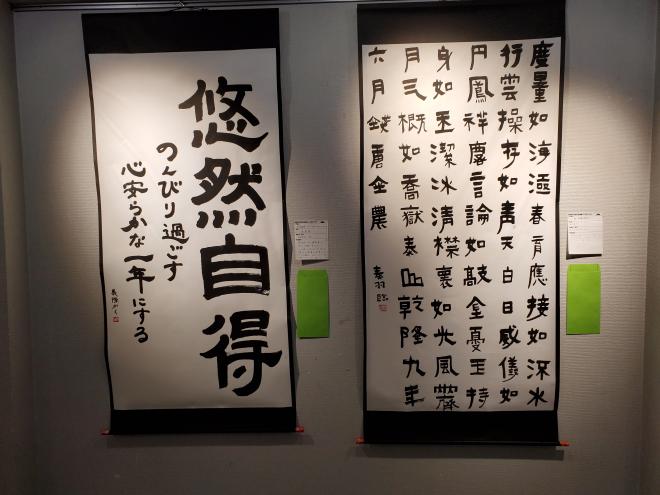 悠然自得
のんびり過ごす
心安らかな一年にする
度量如海涵春育應接如流水
行雲操存如青天白日威儀如
丹鳳祥麐言論如敲金戛玉持
身如玉潔冰清襟裏如光風霽
月气概如喬嶽泰山乾隆九年
六月錢唐金農